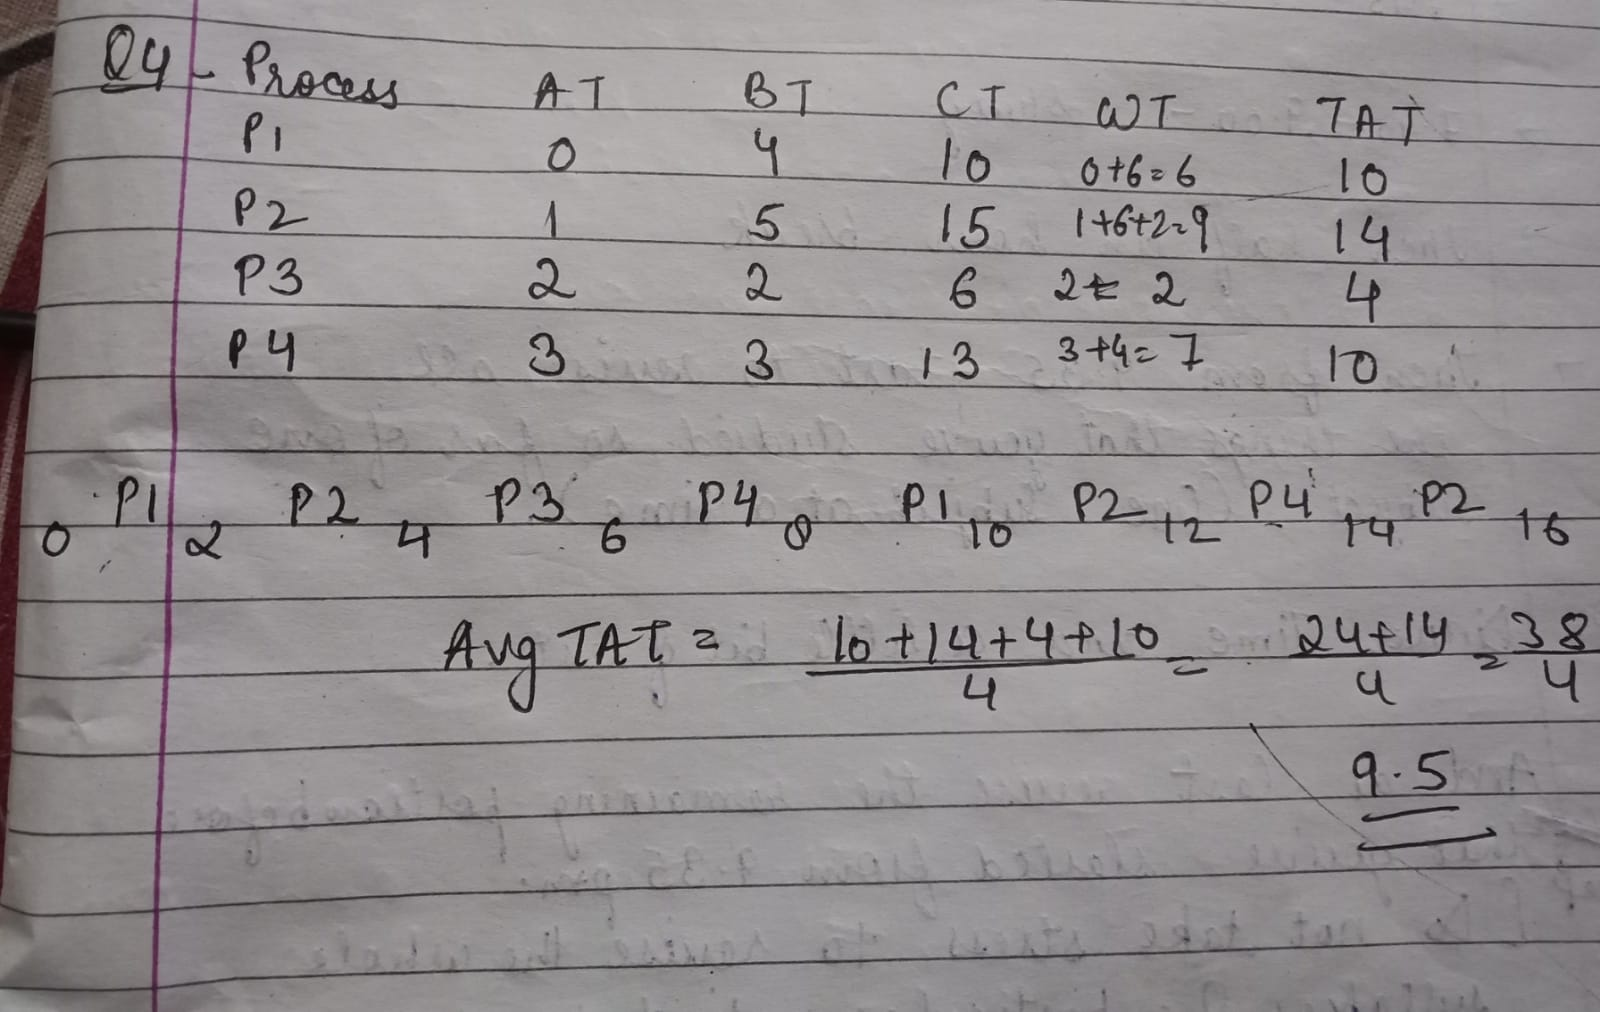 Q4 - Process AT BT CT WT TAT
P1 0 4 10 0+6=6 10
P2 1 5 15 1+6+2=9 14
P3 2 2 6 2 2 4
P4 3 3 13 3+4=7 10
P1 P2 P3 P4 P1 P2 P4 P2
0 2 4 6 8 10 12 14 16
Avg TAT = 10+14+4+10/4 = 24+14/4 = 38/4
9.5